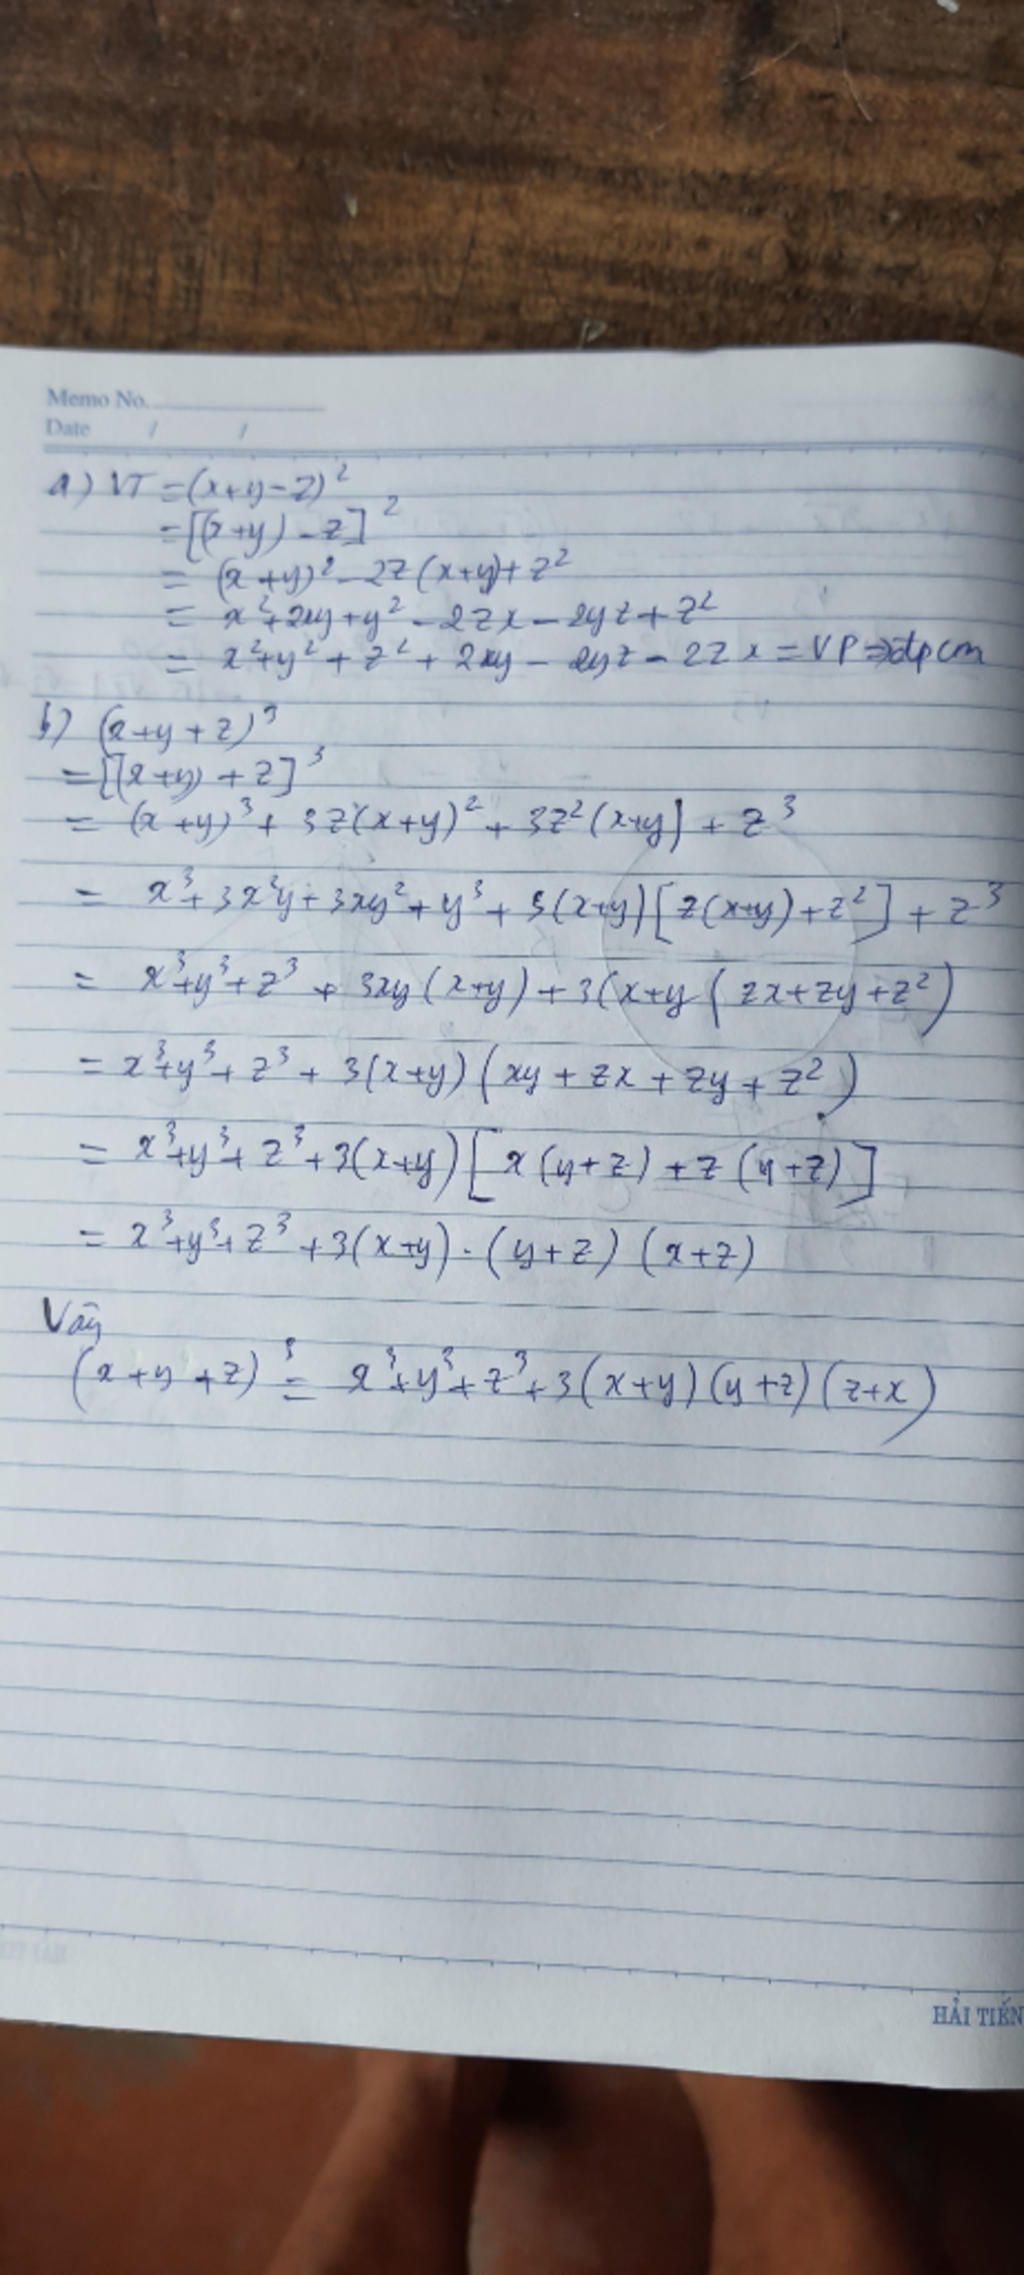 Memo No.
Date / /
a) VT = (x+y-z)²
= [(x+y) - z]²
= (x+y)² - 2z(x+y) + z²
= x² + 2xy + y² - 2zx - 2yz + z²
= x² + y² + z² + 2xy - 2yz - 2zx = VP => đpcm
b) (x+y+z)³
= [(x+y) + z]³
= (x+y)³ + 3z(x+y)² + 3z²(x+y) + z³
= x³ + 3x²y + 3xy² + y³ + 3(x+y)[z(x+y) + z²] + z³
= x³ + y³ + z³ + 3xy(x+y) + 3(x+y(zx+zy+z²)
= x³ + y³ + z³ + 3(x+y)(xy + zx + zy + z²)
= x³ + y³ + z³ + 3(x+y)[x(y+z) + z(y+z)]
= x³ + y³ + z³ + 3(x+y).(y+z)(x+z)
Vậy
(x+y+z)³ = x³ + y³ + z³ + 3(x+y)(y+z)(z+x)
HẢI TIẾN